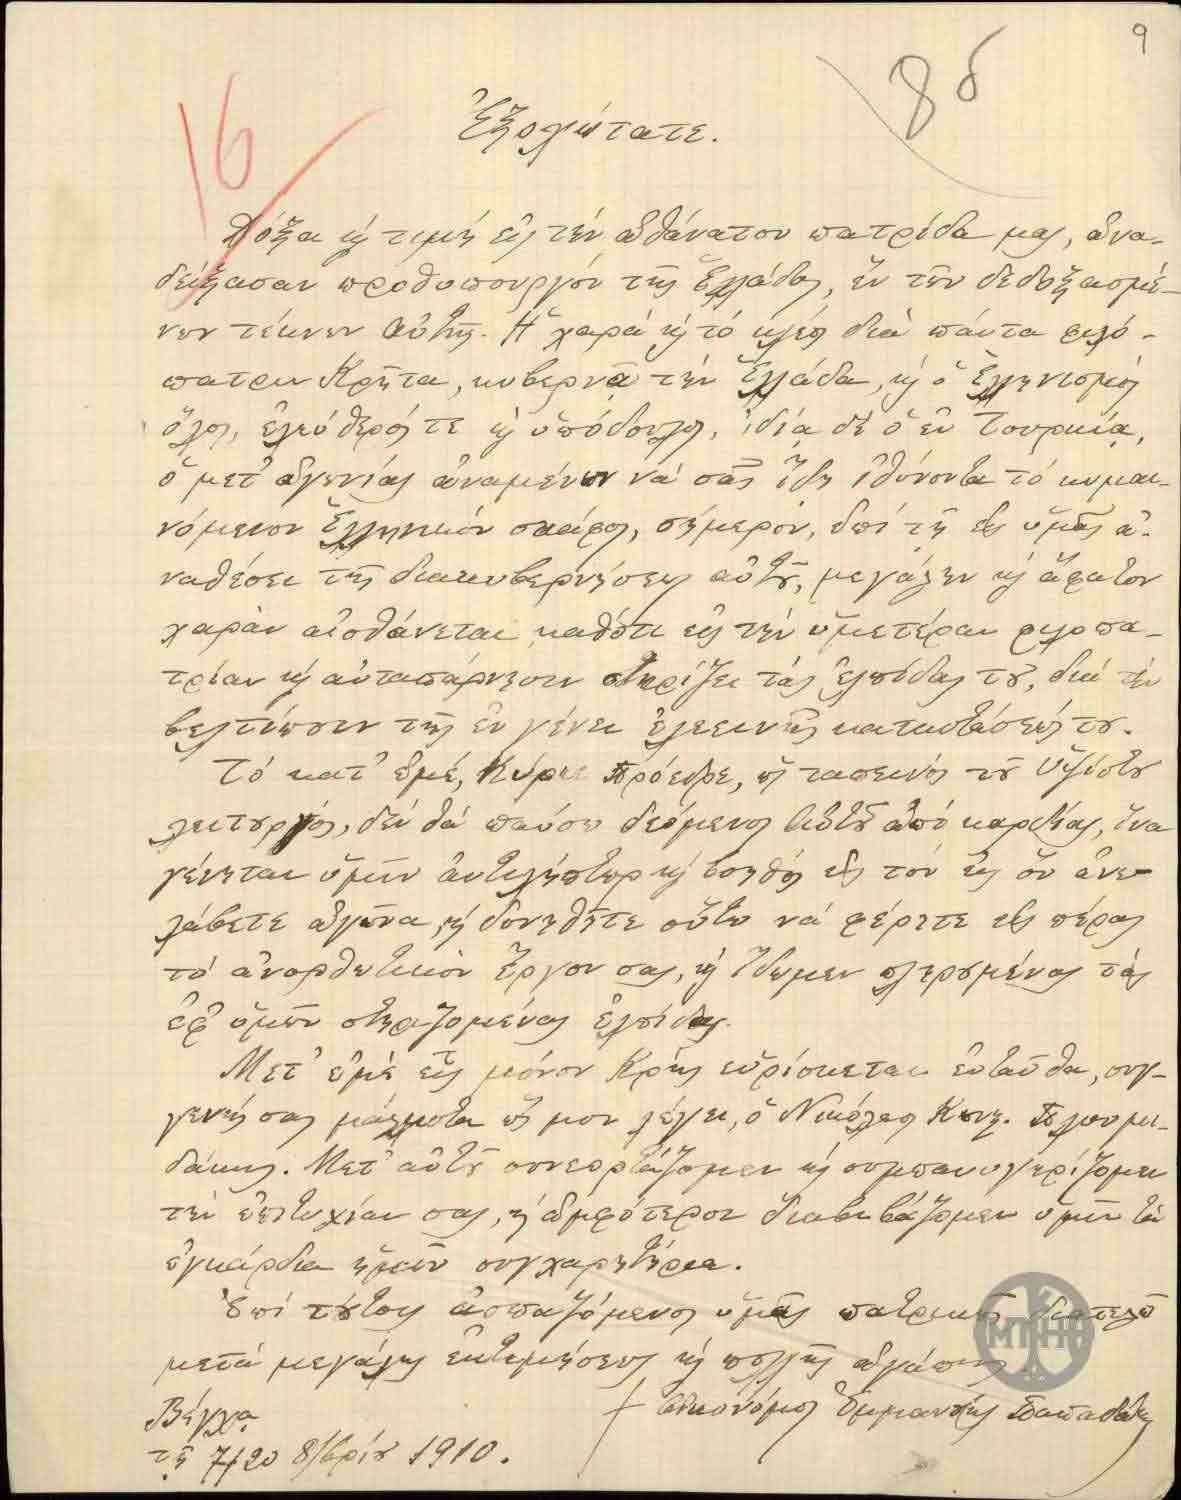 9
8δ
16
Ἐξοχώτατε.
Δόξα κ τιμή εἰς τήν ἀθάνατον πατρίδα μας, ἀνα-
δείξασαν πρωθυπουργόν τῆς Ἑλλάδος, ἕν τῶν δεδοξασμέ-
νων τέκνων αὐτῆς. Ἡ χαρά κ τό κλέος διά πάντα φιλό-
πατριν Κρῆτα, κυβερνᾷ τήν Ἑλλάδα, κ ὁ Ἑλληνισμός
ὅλος, ἐλεύθερός τε κ ὑπόδουλος, ἰδίᾳ δέ ὁ ἐν Τουρκίᾳ,
ὁ μετ' ἀγωνίας ἀναμένων νά σᾶς ἴδῃ ἰθύνοντα τό κυμαι-
νόμενον Ἑλληνικόν σκάφος, σήμερον, ἐπί τῇ εἰς ὑμᾶς ἀ-
ναθέσει τῆς διακυβερνήσεως αὐτοῦ, μεγάλην κ ἄφατον
χαράν αἰσθάνεται καθότι εἰς τήν ὑμετέραν φιλοπα-
τρίαν κ αὐταπάρνησιν στηρίζει τάς ἐλπίδας του, διά τήν
βελτίωσιν τῆς ἐν γένει ἐλεεινῆς καταστάσεώς του.
Τό κατ' ἐμέ, Κύριε Πρόεδρε, ὡς ταπεινός τοῦ Ὑψίστου
λειτουργός, δέν θά παύσω δεόμενος αὐτοῦ ἀπό καρδίας, ἵνα
γένηται ὑμῖν ἀντιλήπτωρ κ βοηθός εἰς τόν εἰς ὅν ἀνε-
λάβετε ἀγῶνα, κ δυνηθῆτε οὕτω νά φέρητε εἰς πέρας
τό ἀνορθωτικόν ἔργον σας, κ ἴδωμεν πληρουμένας τάς
ἐφ' ὑμῖν στηριζομένας ἐλπίδας.
Μετ' ἐμέ εἷς μόνον Κρής εὑρίσκεται ἐνταῦθα, συγ-
γενής σας μάλιστα ὡς μοι λέγει, ὁ Νικόλαος Κων.
δάκης. Μετ' αὐτοῦ συνεορτάζομεν κ συμπανυγυρίζομεν
τήν ἐπιτυχίαν σας, κ ἀμφότεροι διαβιβάζομεν ὑμῖν τά
ἐγκάρδια ἡμῶν συγχαρητήρια.
Ἐπί τούτοις ἀσπαζόμενος ὑμᾶς πατρικῶς διατελῶ
μετά μεγάλης ἐκτιμήσεως κ πολλῆς ἀγάπης
οἰκονόμος Ἐμμανουήλ Παπαδάκης
Βέγχα
τῇ 7/20 8/βρίου 1910.